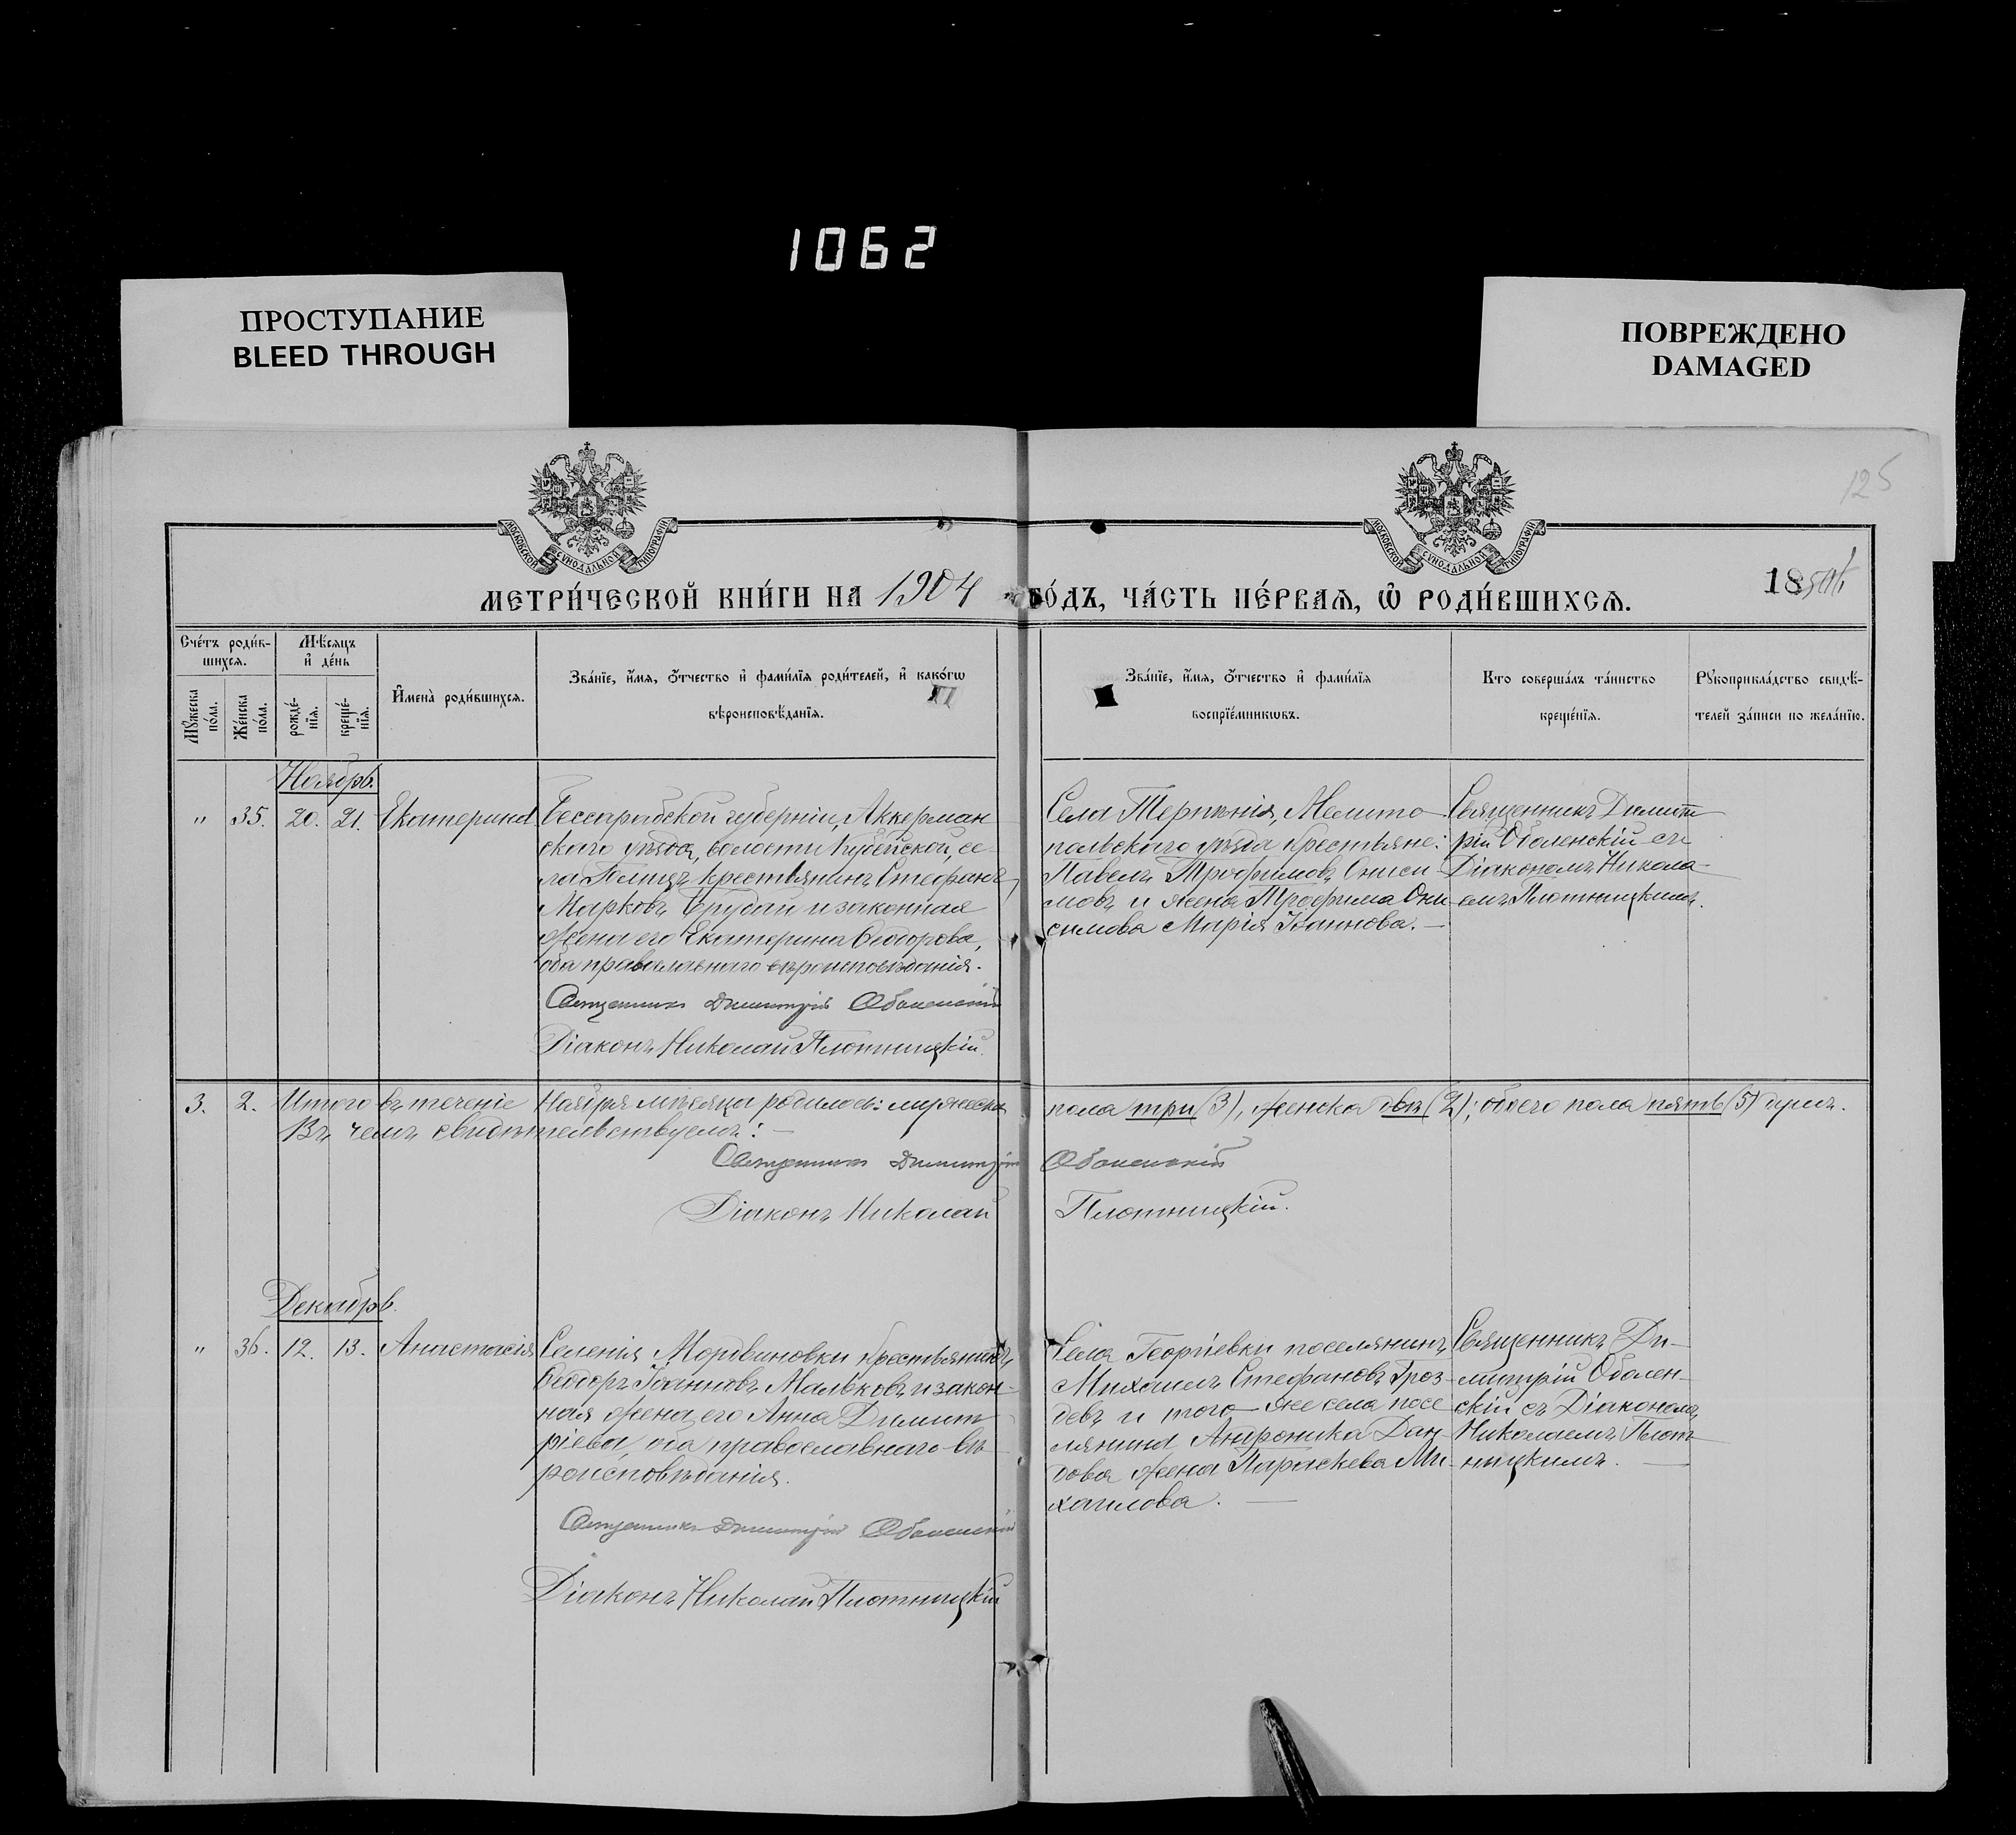 1062
ПРОСТУПАНИЕ
BLEED THROUGH
ПОВРЕЖДЕНО
DAMAGED
125
МОСКОВСКОЙ СУНОДАЛЬНОЙ ТИПОГРАФІИ
МОСКОВСКОЙ СУНОДАЛЬНОЙ ТИПОГРАФІИ
МЕТРИ́ЧЕСКОЙ КНИ́ГИ НА 1904 ГО́ДЪ, ЧА́СТЬ ПЕ́РВАѦ, Ѽ РОДИ́ВШИХСѦ.
18
Сче́тъ роди́в-
шихсѧ.
Мѣ́сѧцъ
и҆ де́нь
Мꙋ́жеска
по́ла.
Же́нска
по́ла.
рожде́-
нїѧ.
креще́-
нїѧ.
И҆мена̀ роди́вшихсѧ.
Зва́нїе, и҆́мѧ, ѻ҆́тчество и҆ фами́лїѧ роди́телей, и҆ како́гѡ
вѣроисповѣ́данїѧ.
Зва́нїе, и҆́мѧ, ѻ҆́тчество и҆ фами́лїѧ
воспрїе́мникѡвъ.
Кто соверша́лъ та́инство
креще́нїѧ.
Рꙋкоприкла́дство свидѣ́-
телей за́писи по жела́нїю.
Ноябрь.
" 35. 20. 21. Екатерина
Бессарабской губерніи, Аккерман
скаго уѣзда, волости Кубейской, се-
ла Голицъ крестьянинъ Стефанъ
Марковъ Брудай и законная
жена его Екатерина Ѳеодорова,
оба православнаго вѣроисповѣданія.
Священникъ Димитрій Оболенскій
Діаконъ Николай Плотницкій.
Села Терпѣнія, Мелито
польскаго уѣзда крестьяне:
Павелъ Трофимовъ Ониси
мовъ и жена Трофима Они
симова Марія Іоаннова. —
Священникъ Димит
рій Оболенскій съ
Діакономъ Никола-
емъ Плотницкимъ.
3. 2. Итого въ теченіе Ноября мѣсяца родилось: мужеска пола три (3), женска двѣ (2); обоего пола пять (5) душъ.
Въ чемъ свидѣтельствуемъ: —
Священникъ Димитрій Оболенскій
Діаконъ Николай Плотницкій.
Декабрь.
" 36. 12. 13. Анастасія
Селенія Мордвиновки крестьянинъ
Ѳеодоръ Іоанновъ Мальковъ и закон-
ная жена его Анна Димит
ріева, оба православнаго вѣ
роисповѣданія.
Священникъ Димитрій Оболенскій
Діаконъ Николай Плотницкій
Села Георгіевки поселянинъ
Михаилъ Стефановъ Гроз-
девъ и того-же села посе
лянина Андроника Дан-
дова жена Параскева Ми-
хаилова. —
Священникъ Ди-
митрій Оболен-
скій съ Діакономъ
Николаемъ Плот
ницкимъ. —